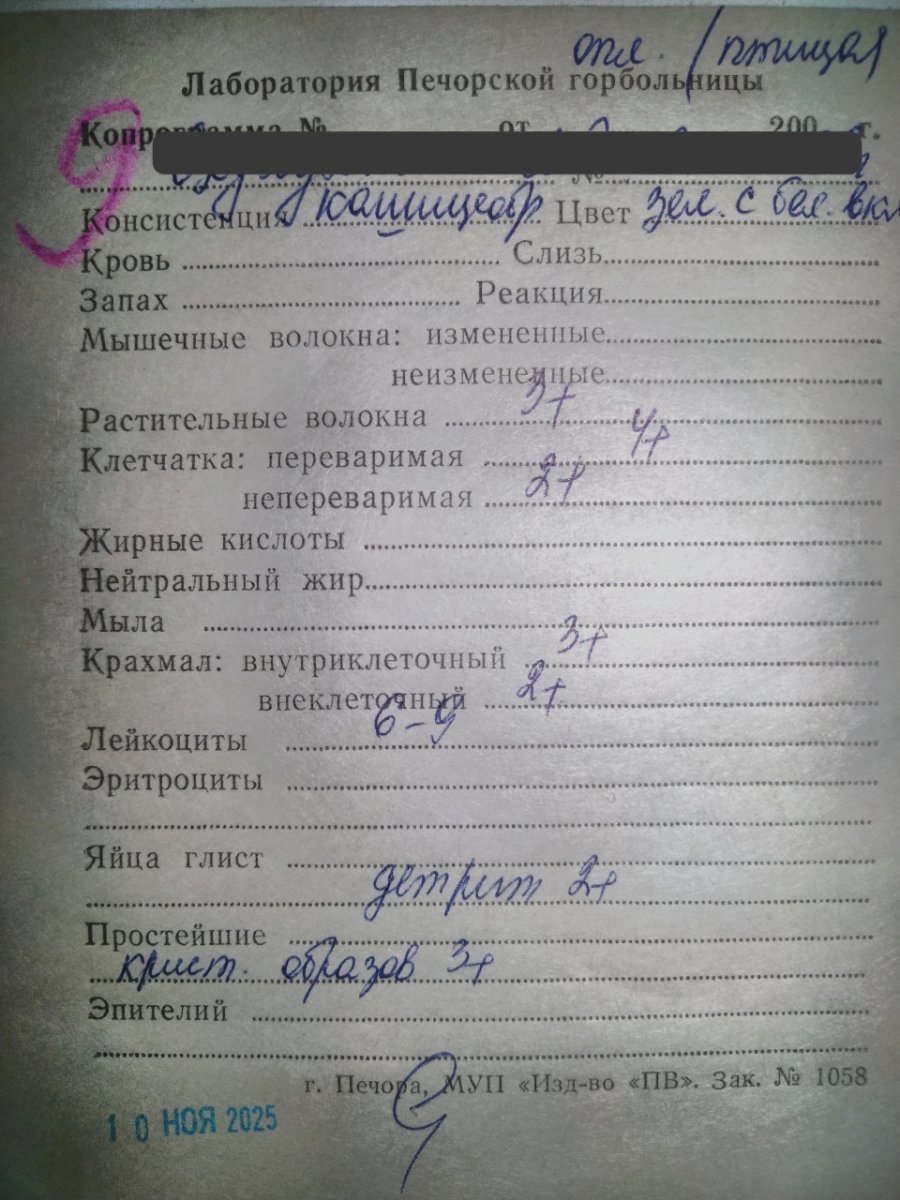 опл. / птицая
Лаборатория Печорской горбольницы
9
Копрограмма № от 200 г.
№
Консистенция кашицеобр Цвет зел. с бел. вкл
Кровь Слизь
Запах Реакция
Мышечные волокна: измененные
неизмененные
Растительные волокна 3+
Клетчатка: переваримая 4+
непереваримая 2+
Жирные кислоты
Нейтральный жир
Мыла
Крахмал: внутриклеточный 3+
внеклеточный 2+
Лейкоциты 6-9
Эритроциты
Яйца глист
детрит 2+
Простейшие
крист. образов 3+
Эпителий
г. Печора, МУП «Изд-во «ПВ». Зак. № 1058
10 НОЯ 2025